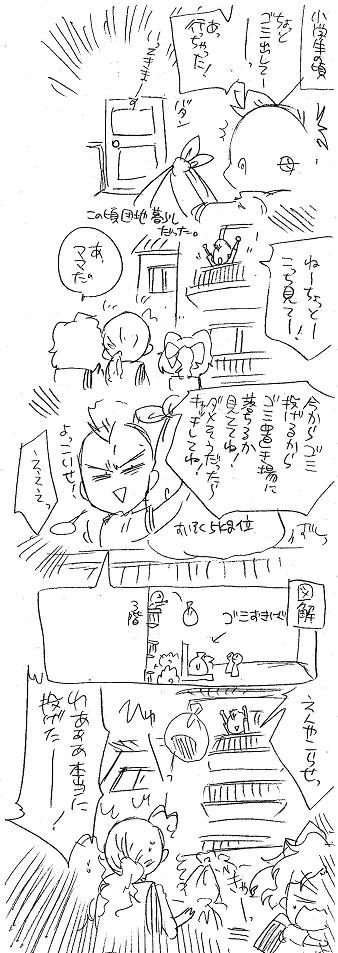 小学生の頃
ちょっと
ゴミ出してー
あっ
行っちゃった!
いってきまーす
バターン
この頃団地暮らし
だった。
ねーちょっとー
こっち見てー!
あ、
ママ
だ。
今からゴミ
投げるから
ゴミ置き場に
落ちるか
見ててね!
ダメそうだったら
キャッチしてね!
よっこいせ!
えええっ
図解
ゴミおきば
3階
えんやこらせっ
ひゅっ
わあああ本当に
投げた!
きゃー